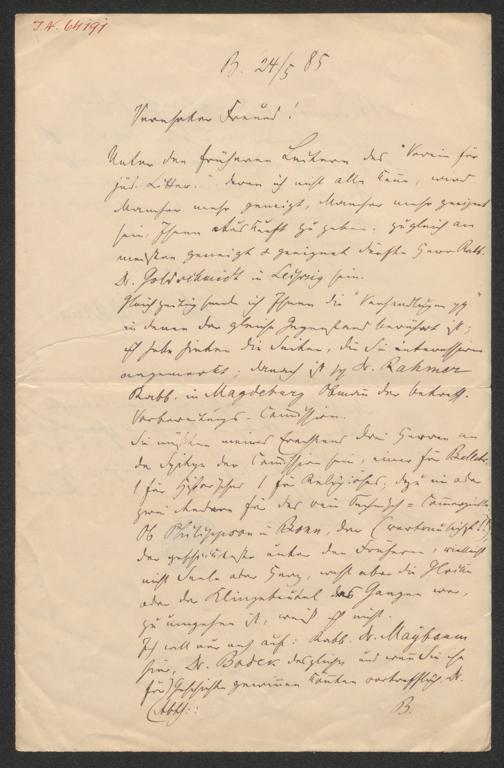 J.N. 64191
B. 24/5 85
Verehrter Freund!
Unter den früheren Leitern des "Verein für
jüd. Litter." deren ich nicht alle kenne, wird
Mancher mehr geneigt, Mancher mehr geeignet
sein, Ihnen Auskunft zu geben. Zugleich am
meisten geneigt & geeignet dürfte Herr Rabb.
Dr. Goldschmidt in Leipzig sein.
Gleichzeitig sende ich Ihnen die "Verhandlungen pp"
in denen der gleiche Gegenstand berührt ist;
ich habe hinten die Seiten, die Sie interessiren
angemerkt; danach ist Dr. Rahmer
Rabb. in Magdeburg Obmann der betreff.
Vorbereitungs-Commission.
Sie müßten meines Erachtens drei Herren an
der Spitze der Commission sein, einer für Belletr.
1 für Historisches 1 für Religiöses; dazu ein oder
zwei Andere für das rein Technisch-Commerzielle
Ob Philippson in Bonn, der (vertraulichst!!)
der gefährlichste unter den Früheren, vielleicht
nicht Seele oder Herz, wohl aber die
oder der Klingelbeutel des Ganzen war,
zu umgehen ist, weiß ich nicht.
Ich will nur noch auf: Rabb. Dr. Maybaum
hier, Dr. Badek desgleichen und wenn Sie ihn
für Geschichte gewinnen könnten vortrefflich Dr.
B.